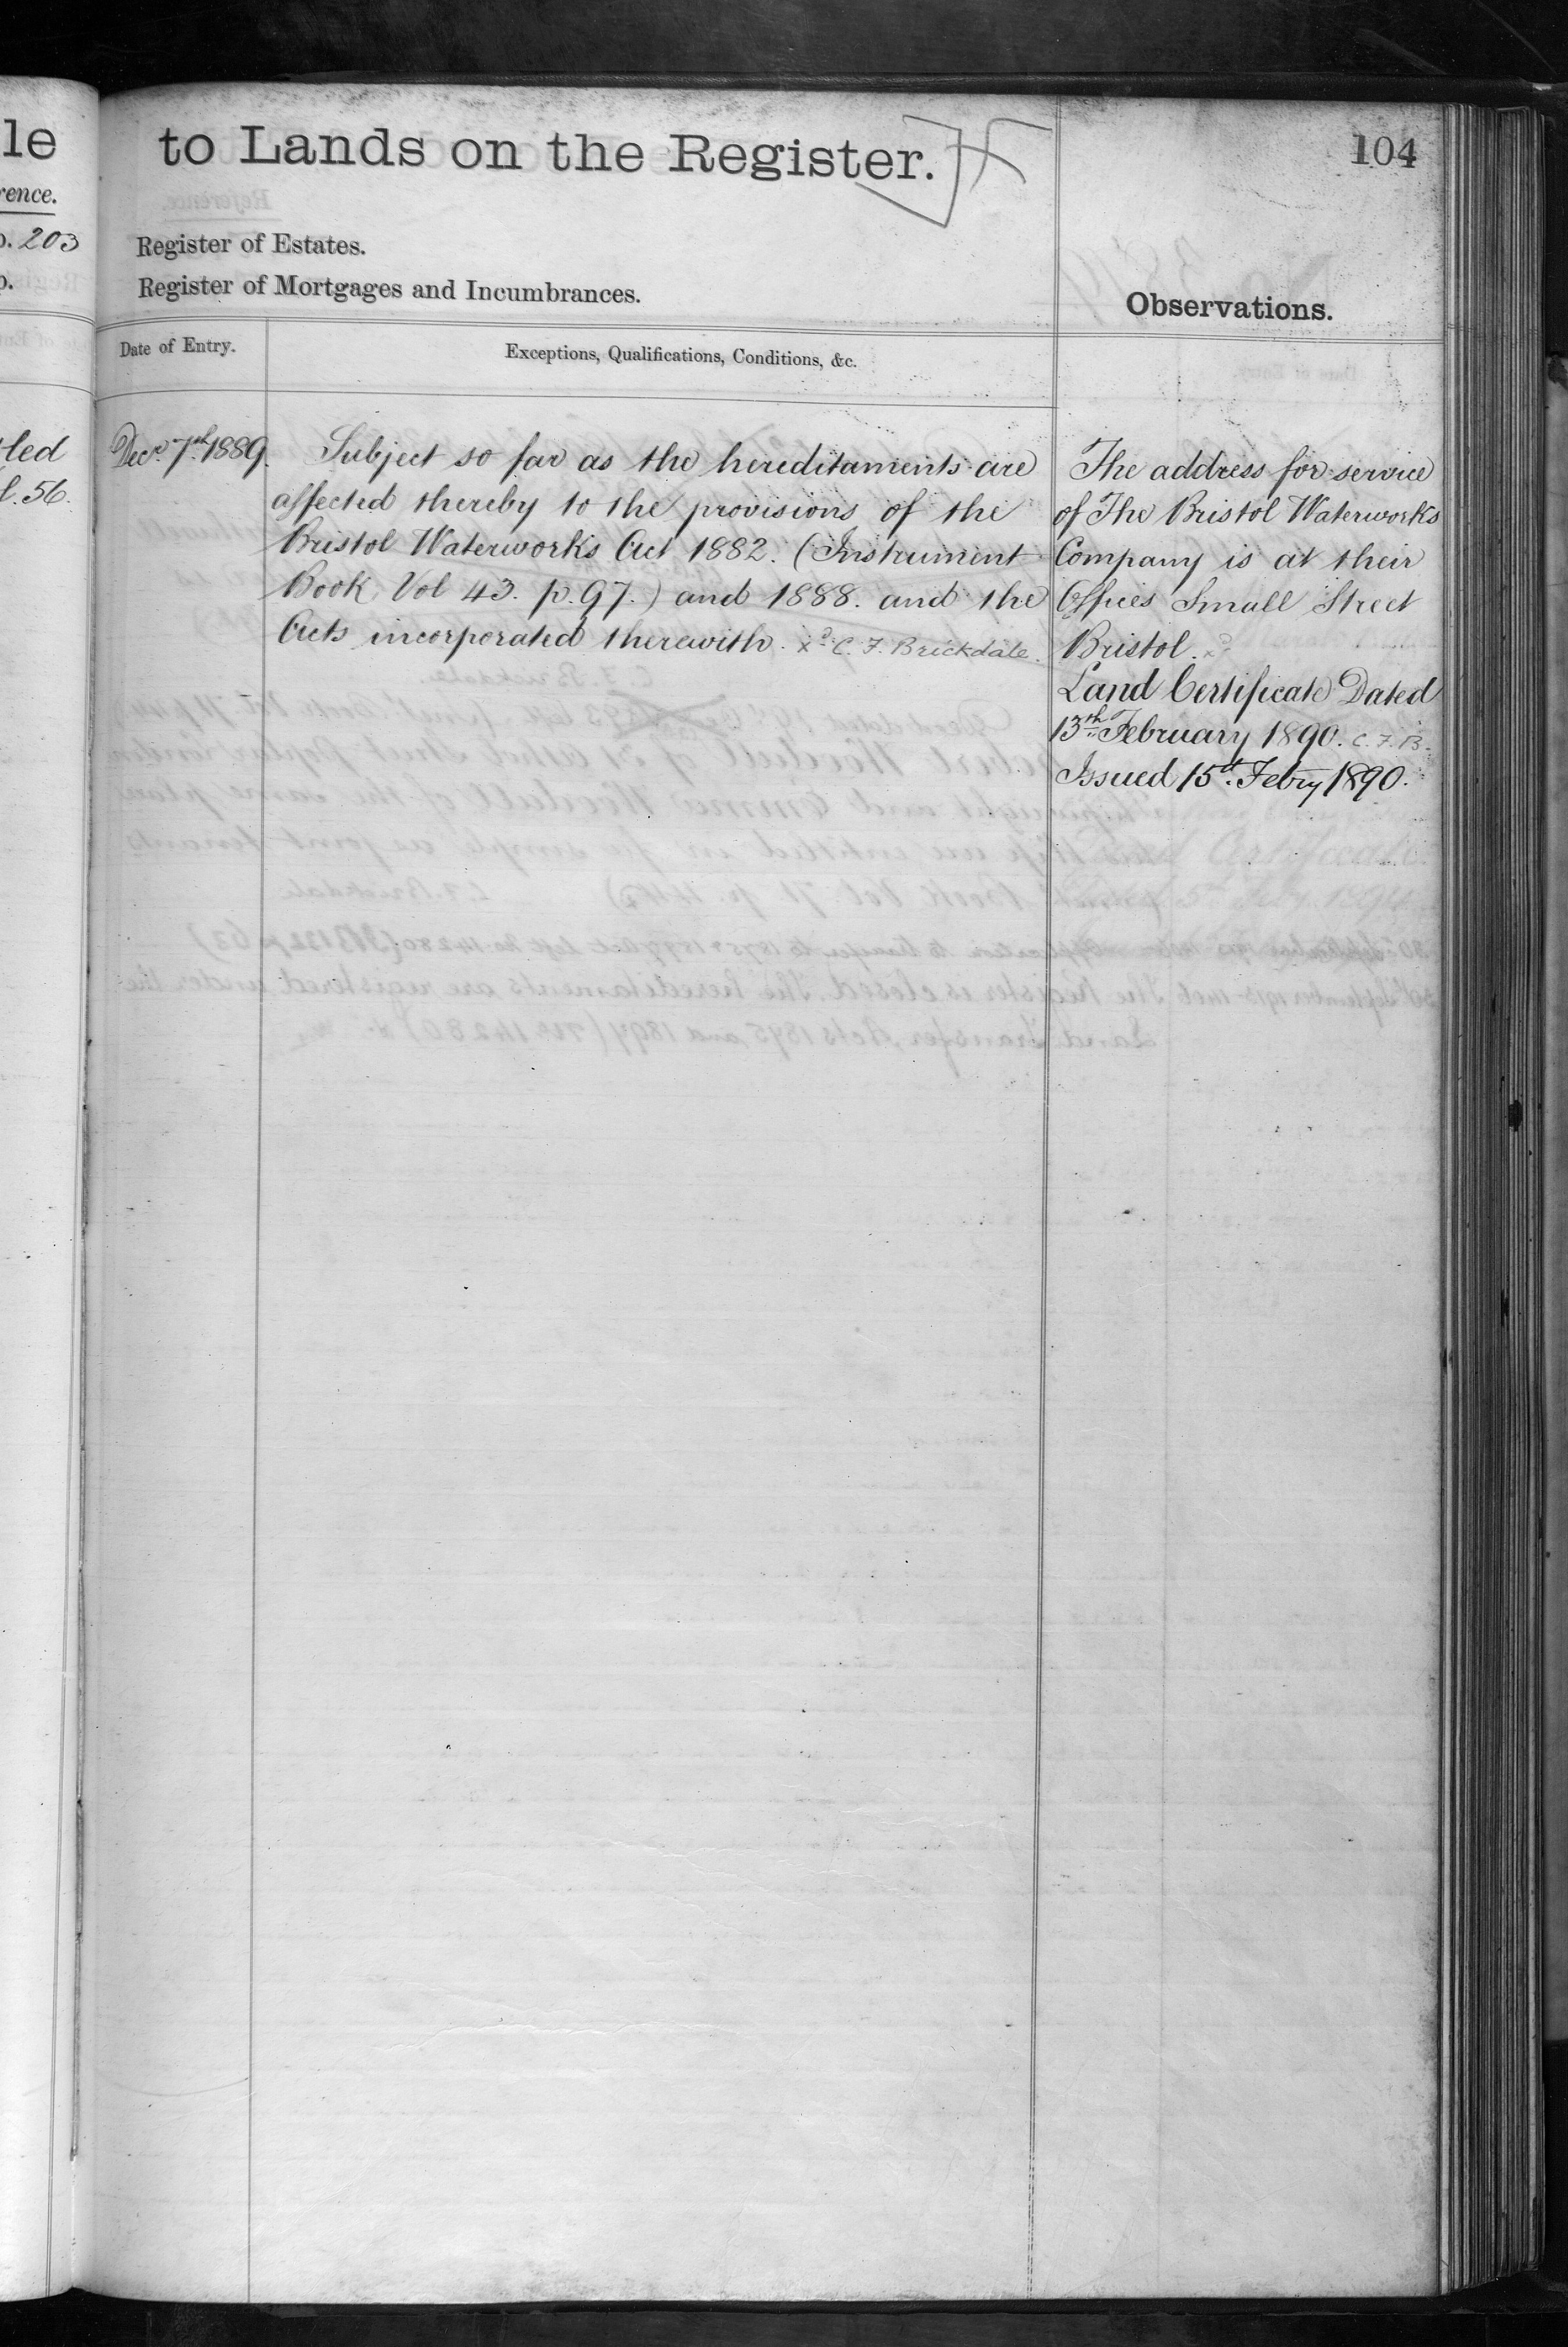 le
to Lands on the Register.
104
rence.
203
Register of Estates.
Register of Mortgages and Incumbrances.
Observations.
Date of Entry.
Exceptions, Qualifications, Conditions, &c.
led
56.
Decr. 7th 1889.
Subject so far as the hereditaments are
affected thereby to the provisions of the
Bristol Waterworks Act 1882. (Instrument
Book Vol 43. p. 97.) and 1888. and the
Acts incorporated therewith. xd. C. F. Brickdale.
The address for service
of The Bristol Waterworks
Company is at their
Offices Small Street
Bristol. xd.
Land Certificate Dated
13th February 1890. C. F. B.
Issued 15th. Febry 1890.